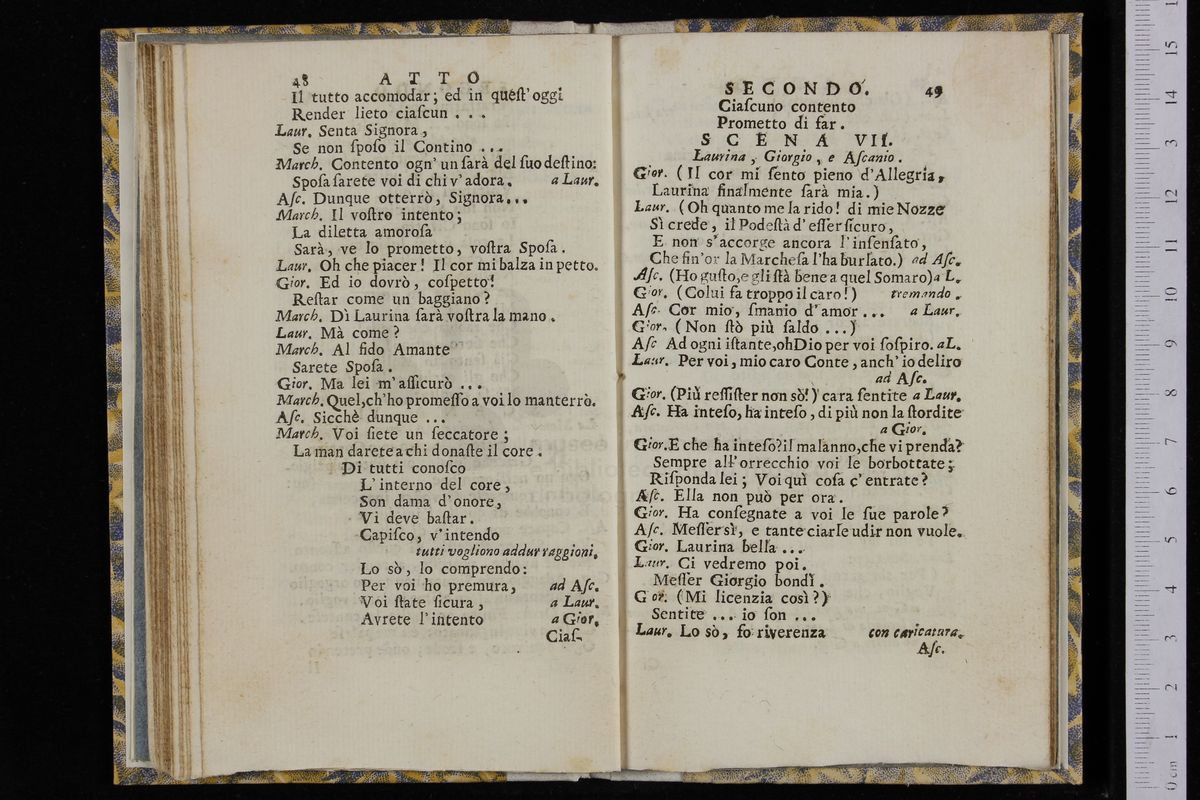 48 ATTO
Il tutto accomodar; ed in queſt'oggi
Render lieto ciaſcun . . .
Laur. Senta Signora,
Se non ſpoſo il Contino ...
March. Contento ogn' un ſarà del ſuo deſtino:
Spoſa ſarete voi di chi v'adora. a Laur.
Aſc. Dunque otterrò, Signora...
March. Il voſtro intento;
La diletta amoroſa
Sarà, ve lo prometto, voſtra Spoſa.
Laur. Oh che piacer! Il cor mi balza in petto.
Gior. Ed io dovrò, coſpetto!
Reſtar come un baggiano?
March. Dì Laurina ſarà voſtra la mano.
Laur. Mà come?
March. Al fido Amante
Sarete Spoſa.
Gior. Ma lei m'aſſicurò ...
March. Quel, ch'ho promeſſo a voi lo manterrò.
Aſc. Sicchè dunque ...
March. Voi ſiete un ſeccatore;
La man darete a chi donaſte il core.
Di tutti conoſco
L'interno del core,
Son dama d'onore,
Vi deve baſtar.
Capiſco, v'intendo
tutti vogliono addur raggioni.
Lo sò, lo comprendo:
Per voi ho premura, ad Aſc.
Voi ſtate ſicura, a Laur.
Avrete l'intento a Gior.
Ciaſ-
SECONDO. 49
Ciaſcuno contento
Prometto di far.
SCENA VII.
Laurina, Giorgio, e Aſcanio.
Gior. (Il cor mi ſento pieno d'Allegria,
Laurina finalmente ſarà mia.)
Laur. (Oh quanto me la rido! di mie Nozze
Sì crede, il Podeſtà d'eſſer ſicuro,
E non s'accorge ancora l'inſenſato,
Che fin'or la Marcheſa l'ha burlato.) ad Aſc.
Aſc. (Ho guſto, e gli ſtà bene a quel Somaro) a L.
Gior. (Colui fa troppo il caro!) tremando.
Aſc. Cor mio, ſmanio d'amor ... a Laur.
Gior. (Non ſtò più ſaldo ...)
Aſc Ad ogni iſtante, oh Dio per voi ſoſpiro. aL.
Laur. Per voi, mio caro Conte, anch'io deliro
ad Aſc.
Gior. (Più reſſiſter non sò!) cara ſentite a Laur.
Aſc. Ha inteſo, ha inteſo, di più non la ſtordite
a Gior.
Gior. E che ha inteſo? il malanno, che vi prenda?
Sempre all'orrecchio voi le borbottate;
Riſponda lei; Voi quì coſa c'entrate?
Aſc. Ella non può per ora.
Gior. Ha conſegnate a voi le ſue parole?
Aſc. Meſſer sì, e tante ciarle udir non vuole.
Gior. Laurina bella ...
Laur. Ci vedremo poi.
Meſſer Giorgio bondì.
Gior. (Mi licenzia così?)
Sentite ... io ſon ...
Laur. Lo sò, fo riverenza con caricatura.
Aſc.